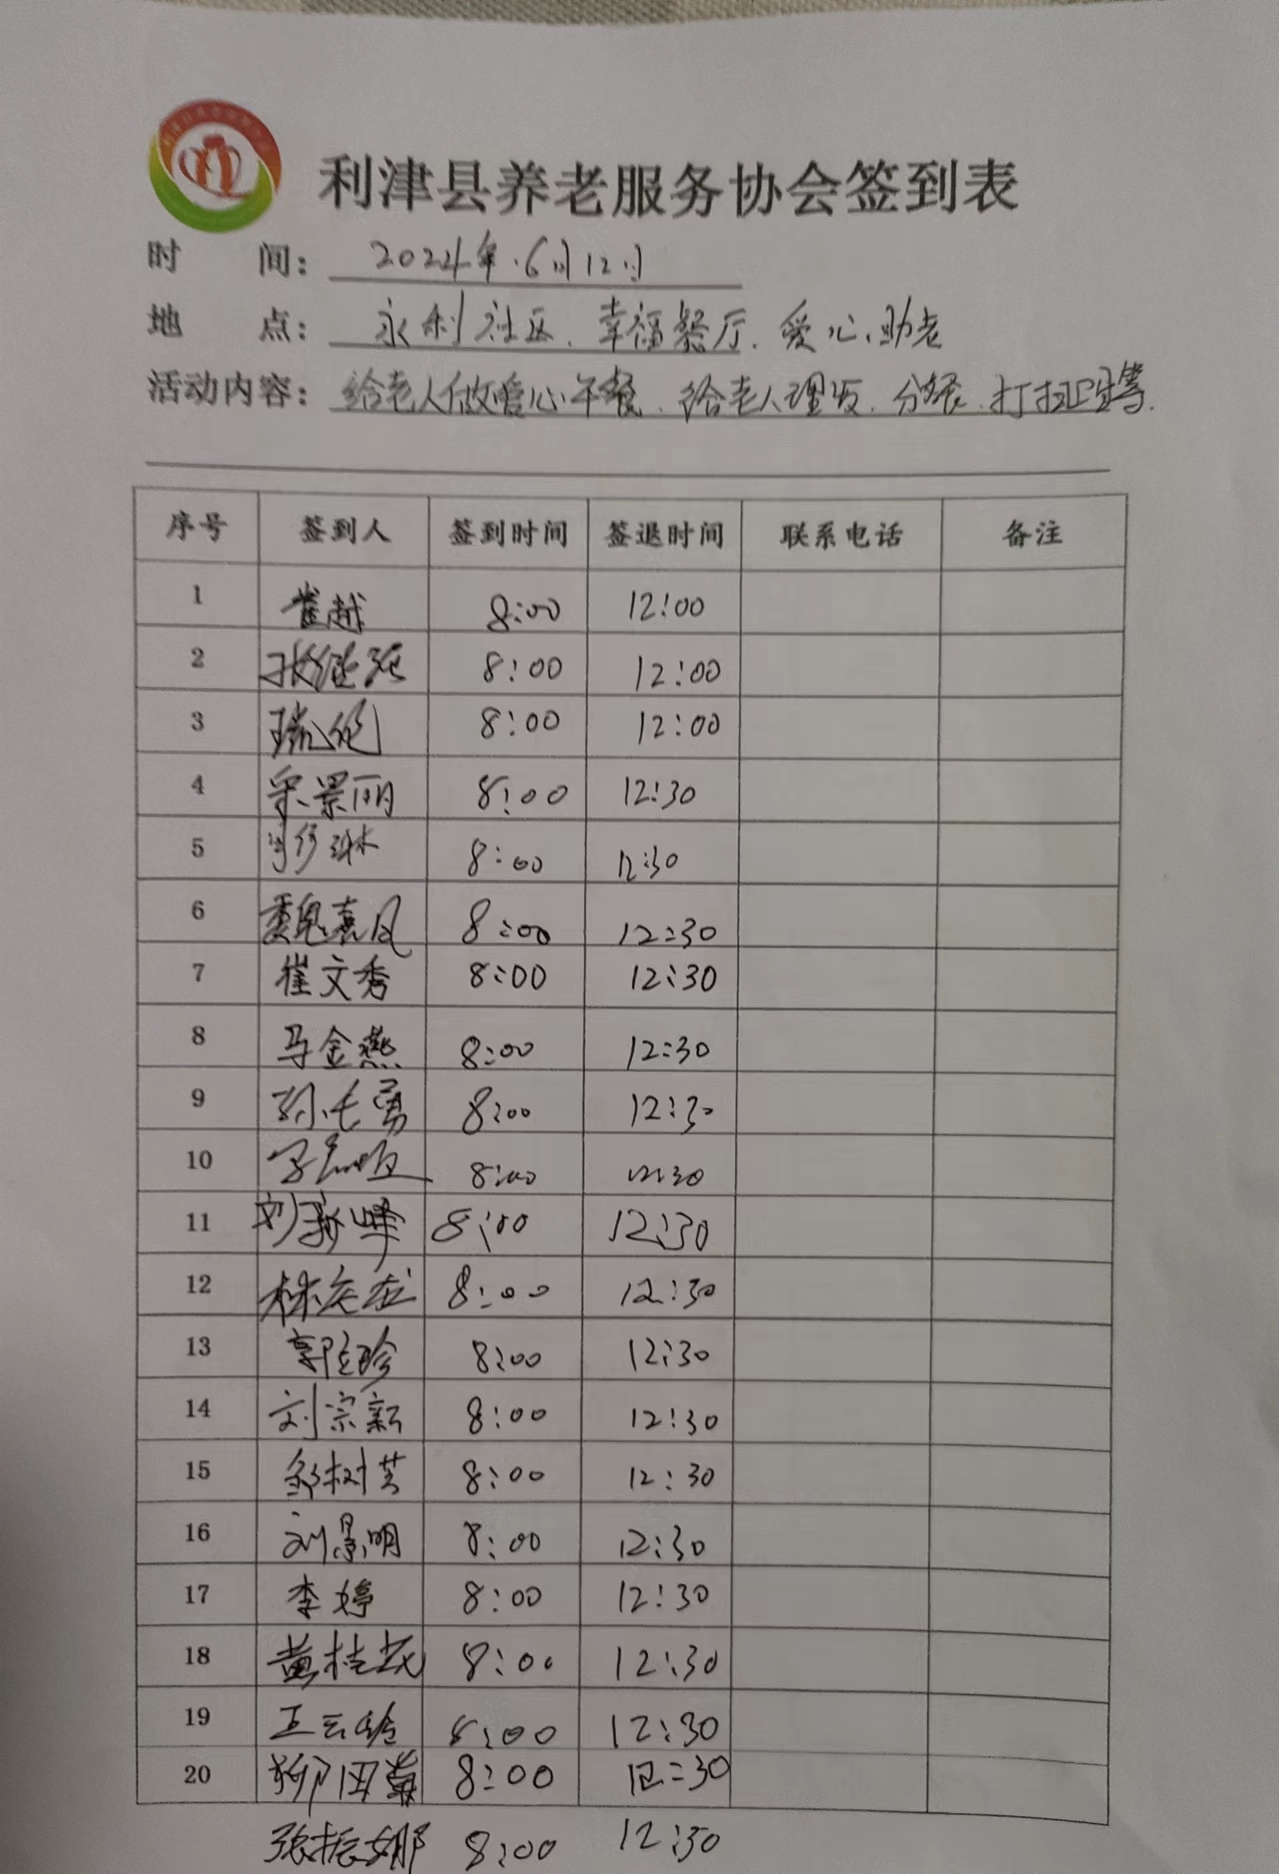 利津县养老服务协会签到表
时 间: 2024年.6月12日
地 点: 永利社区、幸福餐厅、爱心助老
活动内容: 给老人做爱心午餐、给老人理发、分餐、打扫卫生等.
序号 签到人 签到时间 签退时间 联系电话 备注
1 崔越 8:00 12:00
2 8:00 12:00
3 8:00 12:00
4 宋景丽 8:00 12:30
5 8:00 12:30
6 魏嘉凤 8:00 12:30
7 崔文秀 8:00 12:30
8 马金燕 8:00 12:30
9 8:00 12:30
10 8:00 12:30
11 刘新峰 8:00 12:30
12 8:00 12:30
13 郭玲珍 8:00 12:30
14 刘宗新 8:00 12:30
15 邹树芸 8:00 12:30
16 刘景明 8:00 12:30
17 李婷 8:00 12:30
18 黄桂花 8:00 12:30
19 8:00 12:30
20 8:00 12:30
张振娜 8:00 12:30